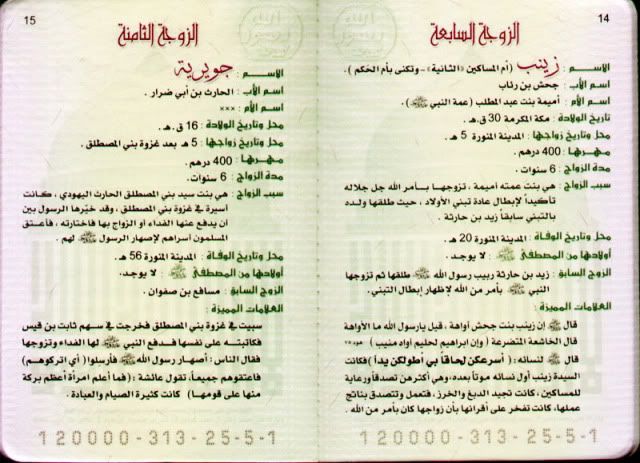 14
الزوجة السابعة
الاسـم : زينب (أم المساكين «الثانية» - وتكنى بأم الحكم ) .
اسم الأب : جحش بن رئاب
اسم الأم : أميمة بنت عبد المطلب (عمة النبي ﷺ) .
تاريخ الولادة : مكة المكرمة 30 ق.هـ .
محل وتاريخ زواجها : المدينة المنورة 5 هـ .
مهـرهـا : 400 درهم .
مدة الزواج : 6 سنوات .
سبب الزواج : هي بنت عمته أميمة ، تزوجها بـأمر الله جل جلاله
تأكيداً لإبطال عادة تبني الأولاد ، حيث طلقها ولده
بالتبني سابقاً زيد بن حارثة .
محل وتاريخ الوفاة : المدينة المنورة 20 هـ .
أولادها من المصطفى ﷺ : لا يوجد .
الزوج السابق : زيد بن حارثة ربيب رسول الله ﷺ طلقها ثم تزوجها
النبي ﷺ بأمر من الله لإظهار إبطال التبني .
العلامات المميزة :
قال ﷺ إن زينب بنت جحش أواهة ، قيل يارسول الله ما الأواهة
قال الخاشعة المتضرعة ( وإن إبراهيم لحليم أواه منيب ) هود ٧٥
قال ﷺ لنسائه : ( أسرعكن لحاقاً بي أطولكن يداً ) فكانت
السيدة زينب أول نسائه موتاً بعده، وهي أكثرهن تصدقاً ورعاية
للمساكين ، كانت تجيد الدبغ والخرز ، فتعمل وتتصدق بناتج
عملها، كانت تفخر على أقرانها بأن زواجها كان بأمر من الله .
120000-313-25-5-1
15
الزوجة الثامنة
الاسـم : جويرية
اسم الأب : الحارث بن أبي ضرار .
اسم الأم : ×××
محل وتاريخ الولادة : 16 ق.هـ .
محل وتاريخ زواجها : 5 هـ بعد غزوة بني المصطلق .
مهـرهـا : 400 درهم .
مدة الزواج : 6 سنوات .
سبب الزواج : هي بنت سيد بني المصطلق الحارث اليهودي ، كانت
أسيرة في غزوة بني المصطلق ، وقد خيّرها الرسول بين
أن يدفع عنها الفداء أو الزواج بها فاختارته ، فأعتق
المسلمون أسراهم لإصهار الرسول ﷺ لهم .
محل وتاريخ الوفاة : المدينة المنورة 56 هـ .
أولادها من المصطفى ﷺ : لا يوجد .
الزوج السابق : مسافع بن صفوان .
العلامات المميزة :
سبيت في غزوة بني المصطلق فخرجت في سهم ثابت بن قيس
فكاتبته على نفسها فدفع النبي ﷺ لها الفداء وتزوجها
فقال الناس : أصهار رسول الله ﷺ فأرسلوا ( أي اتركوهم )
فاعتقوهم جميعاً، تقول عائشة : (فما أعلم امرأة أعظم بركة
منها على قومها) كانت كثيرة الصيام والعبادة .
120000-313-25-5-1